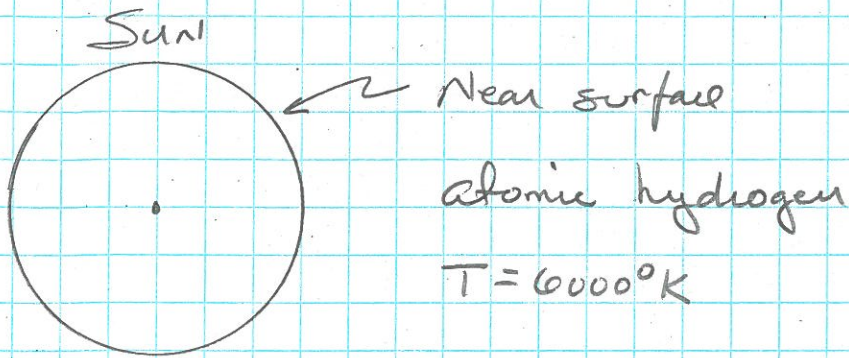 Sun
Near surface
atomic hydrogen
T = 6000°K